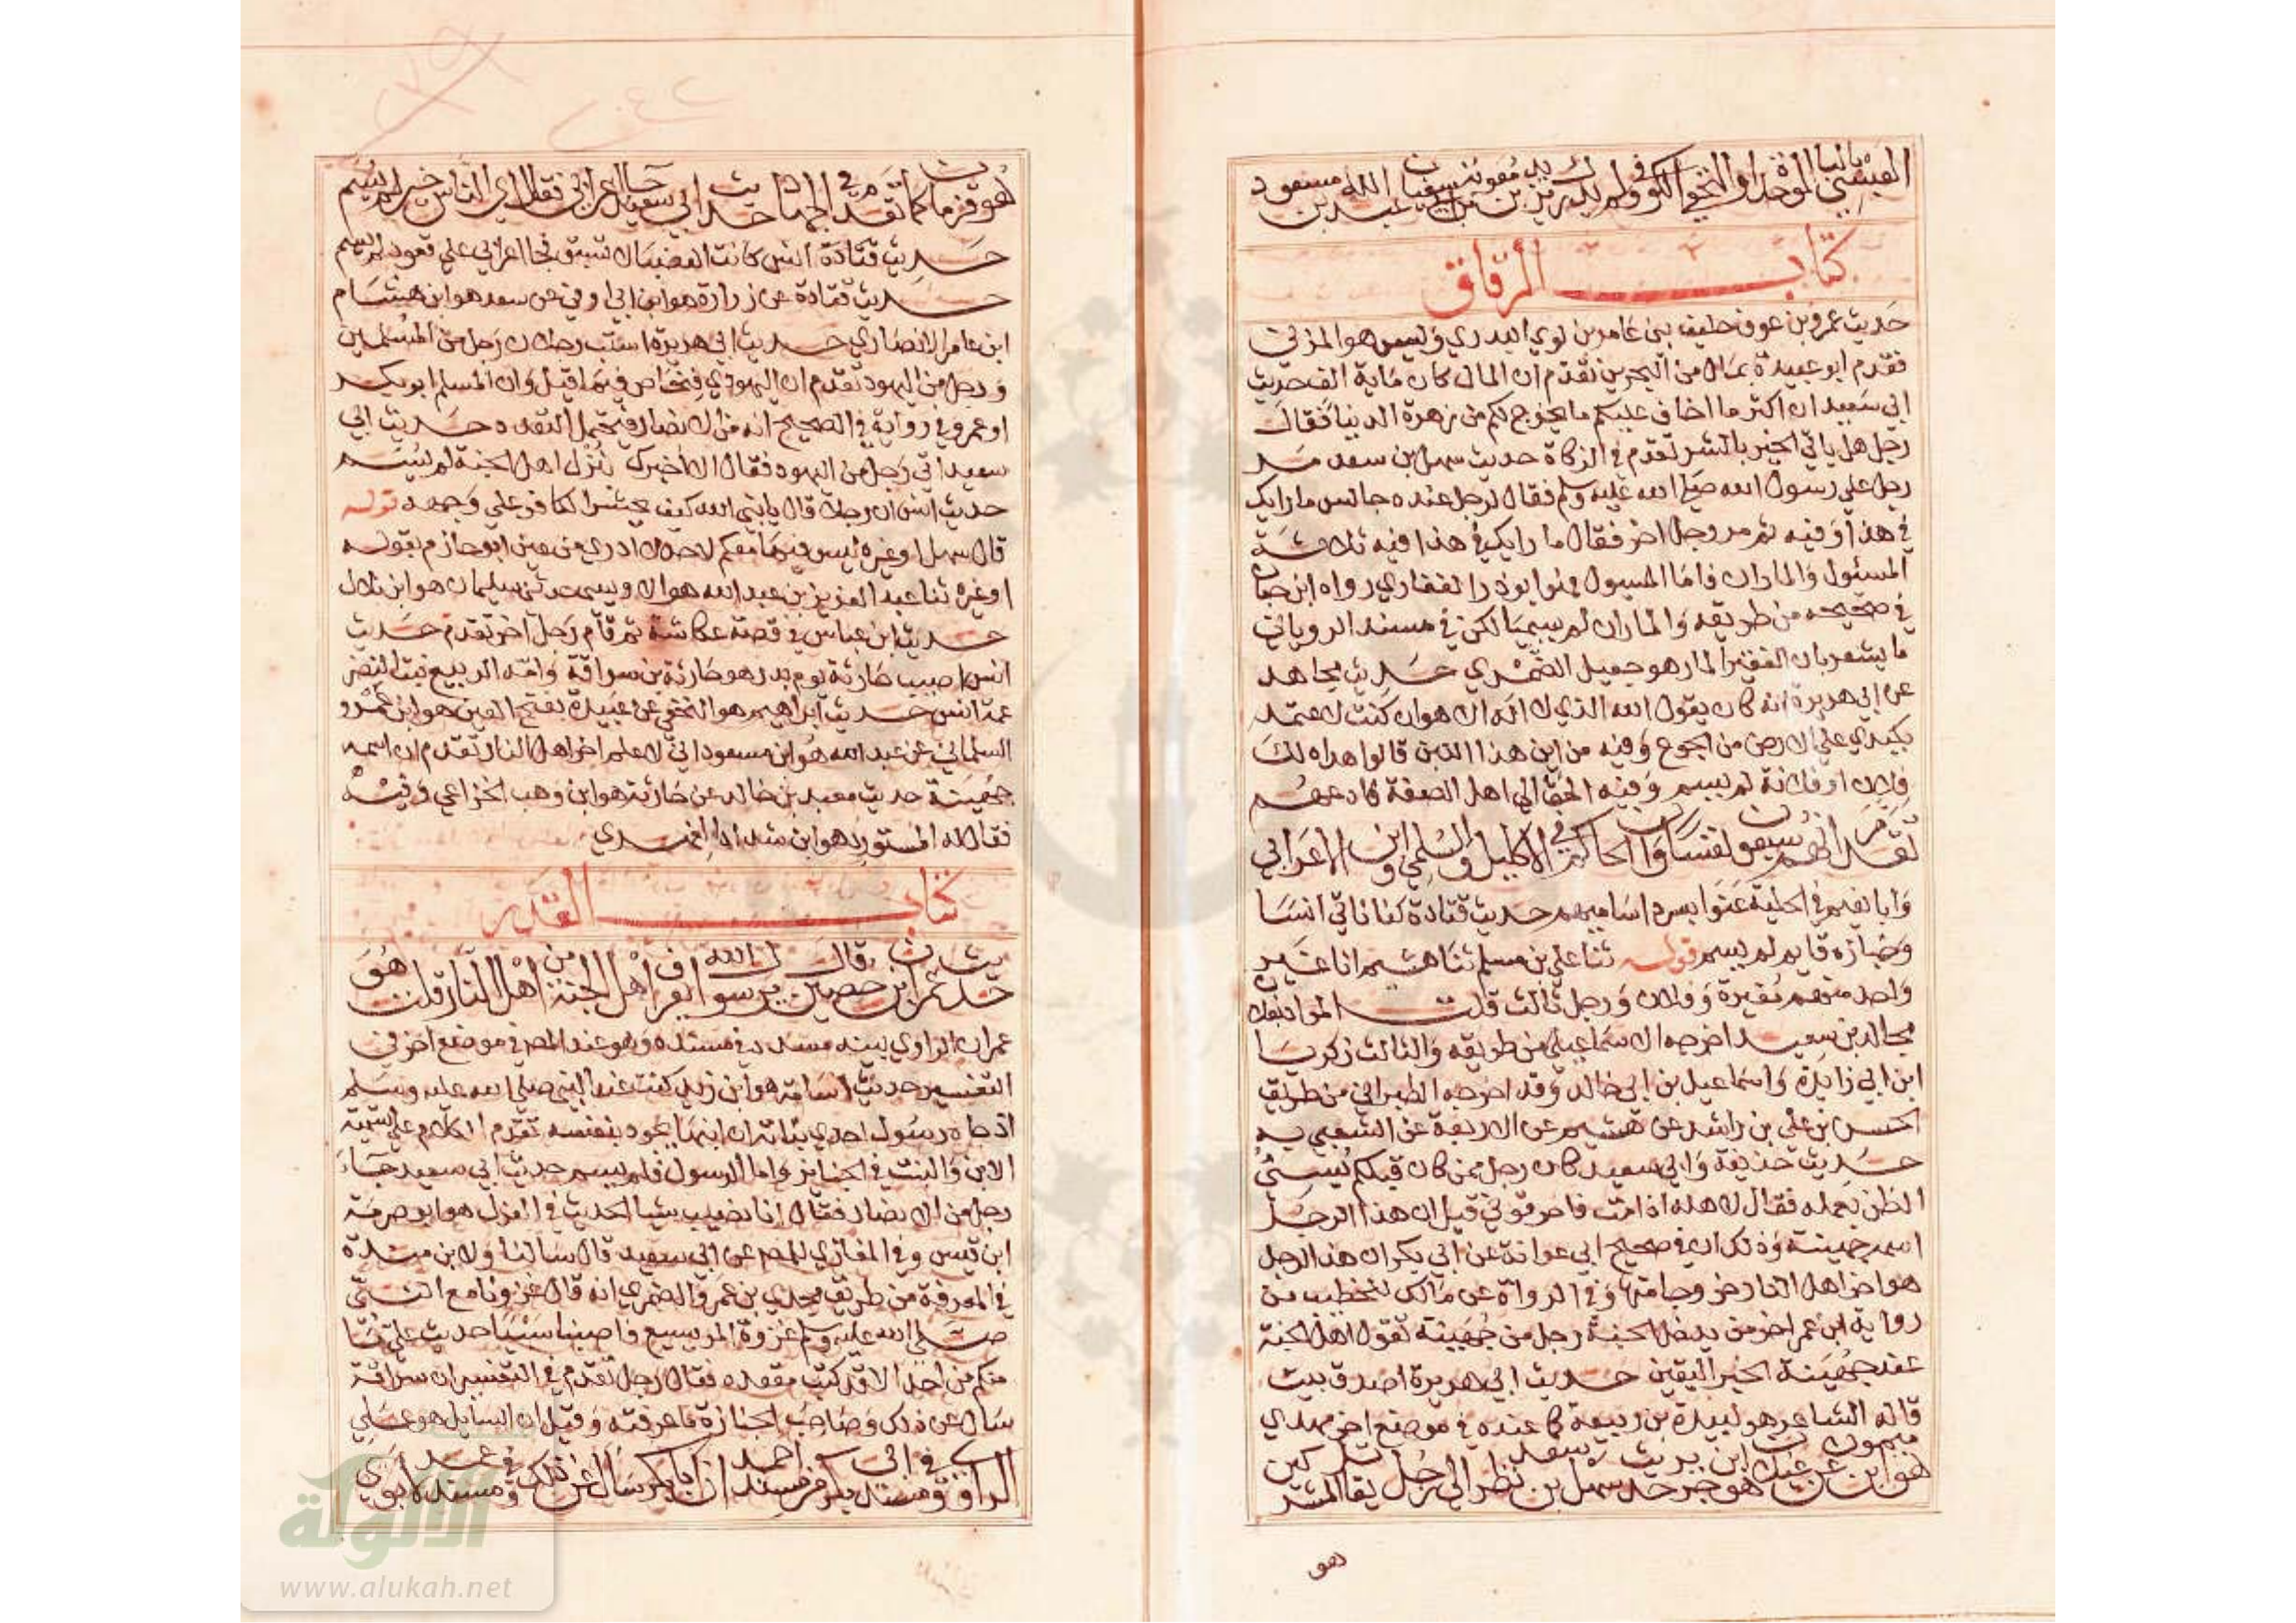 العبسي بالباء الموحدة او النخعي الكوفي ولم يدرك يزيد بن معوية بن ابي سفيان عبد الله بن مسعود
كتاب الرقاق
حديث عمرو بن عوف حليف بني عامر بن لوي البدري وليس هو المزني
فقدم ابو عبيدة بمال من البحرين تقدم ان المال كان ماية الف حديث
ابي سعيد ان اكثر ما اخاف عليكم ما يخرج لكم من زهرة الدنيا فقال
رجل هل ياتي الخير بالشر تقدم في الزكاة حديث سهل بن سعد مر
رجل علي رسول الله صلي الله عليه وسلم فقال لرجل عنده جالس ما رايك
في هذا وفيه ثم مر رجل اخر فقال ما رايك في هذا فيه ثلاثة
المسئول والماران فاما المسيول فهو ابو ذر الغفاري رواه ابن حبان
في صحيحه من طريقه والماران لم يسميا لكن في مسند الروياني
ما يشعر بان الفقير المار هو جعيل الضمري حديث مجاهد
عن ابي هريرة انه كان يقول الله الذي لا اله الا هو ان كنت لاعتمد
بكبدي علي الارض من الجوع وفيه من اين هذا اللبن قالوا اهداه لك
فلان او فلانة لم يسم وفيه الحق الي اهل الصفة فادعهم
تقدم انهم سبعون نفسا وان الحاكم في الاكليل والسلمي وابن الاعرابي
وابا نعيم في الحلية عنوا بسرد اساميهم حديث قتادة كنا ناتي انسا
وخبازه قايم لم يسم قوله ثنا علي بن مسلم ثنا هشيم انا غير
واحد منهم مغيرة وفلان ورجل ثالث قلت المراد بفلان
مجالد بن سعيد اخرجه الاسماعيلي من طريقه والثالث زكريا
ابن ابي زايدة واسماعيل بن ابي خالد وقد اخرجه الطبراني من طريق
الحسن بن علي بن راشد عن هشيم عن الاربعة عن الشعبي به
حديث حذيفة وابي سعيد كان رجل ممن كان قبلكم يسيئ
الظن بعمله فقال لاهله اذا مت فاحرقوني قيل ان هذا الرجل
اسمه جهينة وذلك ان في صحيح ابي عوانة عن ابي بكر ان هذا الرجل
هو اخر اهل النار خروجا منها وفي الرواة عن مالك للخطيب من
رواية ابن عمر اخر من يدخل الجنة رجل من جهينة تقول اهل الجنة
عند جهينة الخبر اليقين حديث ابي هريرة اصدق بيت
قاله الشاعر هو لبيد بن ربيعة كما عنده في موضع اخر مهدي
هو ابن ميمون عن غيلان هو ابن جرير حديث سهل بن سعد نظر الي رجل يقاتل المشركين
هو
هو قزمان كما تقدم في الجهاد حديث ابي سعيد جا اعرابي فقال اي الناس خير لم يسم
حديث قتادة انس كانت العضباء لا تسبق فجا اعرابي علي قعود لم يسم
حديث قتادة عن زرارة هو ابن ابي اوفي عن سعد هو ابن هشام
ابن عامر الانصاري حديث ابي هريرة استب رجلان رجل من المسلمين
ورجل من اليهود تقدم ان اليهودي فنحاص فيما قيل وان المسلم ابو بكر
او عمر وفي رواية في الصحيح انه من الانصار فيحتمل التعدد حديث ابي
سعيد اتي رجل من اليهود فقال الا اخبرك بنزل اهل الجنة لم يسم
حديث انس ان رجلا قال يا نبي الله كيف يحشر الكافر علي وجهه قوله
قال سهل او غيره ليس فيها معلم لاحد لا ادري من عني ابو حازم بقوله
او غيره ثنا عبد العزيز بن عبد الله هو الاويسي حدثني سليمان هو ابن بلال
حديث ابن عباس في قصة عكاشة ثم قام رجل اخر تقدم حديث
انس اصيب حارثة يوم بدر هو حارثة بن سراقة وامه الربيع بنت النضر
عمة انس حديث ابراهيم هو النخعي عن عبيدة بفتح العين هو ابن عمرو
السلماني عن عبد الله هو ابن مسعود اني لاعلم اخر اهل النار تقدم ان اسمه
جهينة حديث معبد بن خالد عن حارثة هو ابن وهب الخزاعي وفيه
فقال له المستورد هو ابن شداد الفهري
كتاب القدر
حديث عمران بن حصين قال يرسول الله ايعرف اهل الجنة من اهل النار قلت هو
عمران الراوي بينه مسدد في مسنده وهو عند المص في موضع اخر في
التفسير حديث اسامة هو ابن زيد كنت عند النبي صلي الله عليه وسلم
اذ جاه رسول احدي بناته ان ابنها يجود بنفسه تقدم الكلام علي تسمية
الابن والبنت في الجنايز واما الرسول فلم يسم حديث ابي سعيد جاء
رجل من الانصار فقال انا نصيب سبيا الحديث في العزل هو ابو صرمة
ابن قيس وفي المغازي للمص عن ابي سعيد قال سالنا ولابن مندة
في المعرفة من طريق مجدي بن عمرو الضمري انه قال غزونا مع النبي
صلي الله عليه وسلم غزوة المريسيع فاصبنا سبيا حديث علي ما
منكم من احد الا قد كتب مقعده فقال رجل تقدم في التفسير ان سراقة
سال عن ذلك وصاحب الجنازة ما عرفته وقيل ان السايل هو علي
الراوي وفي مسند احمد ان ابا بكر سال عن ذلك وفي مسند عمر لابي
الألوكة
www.alukah.net